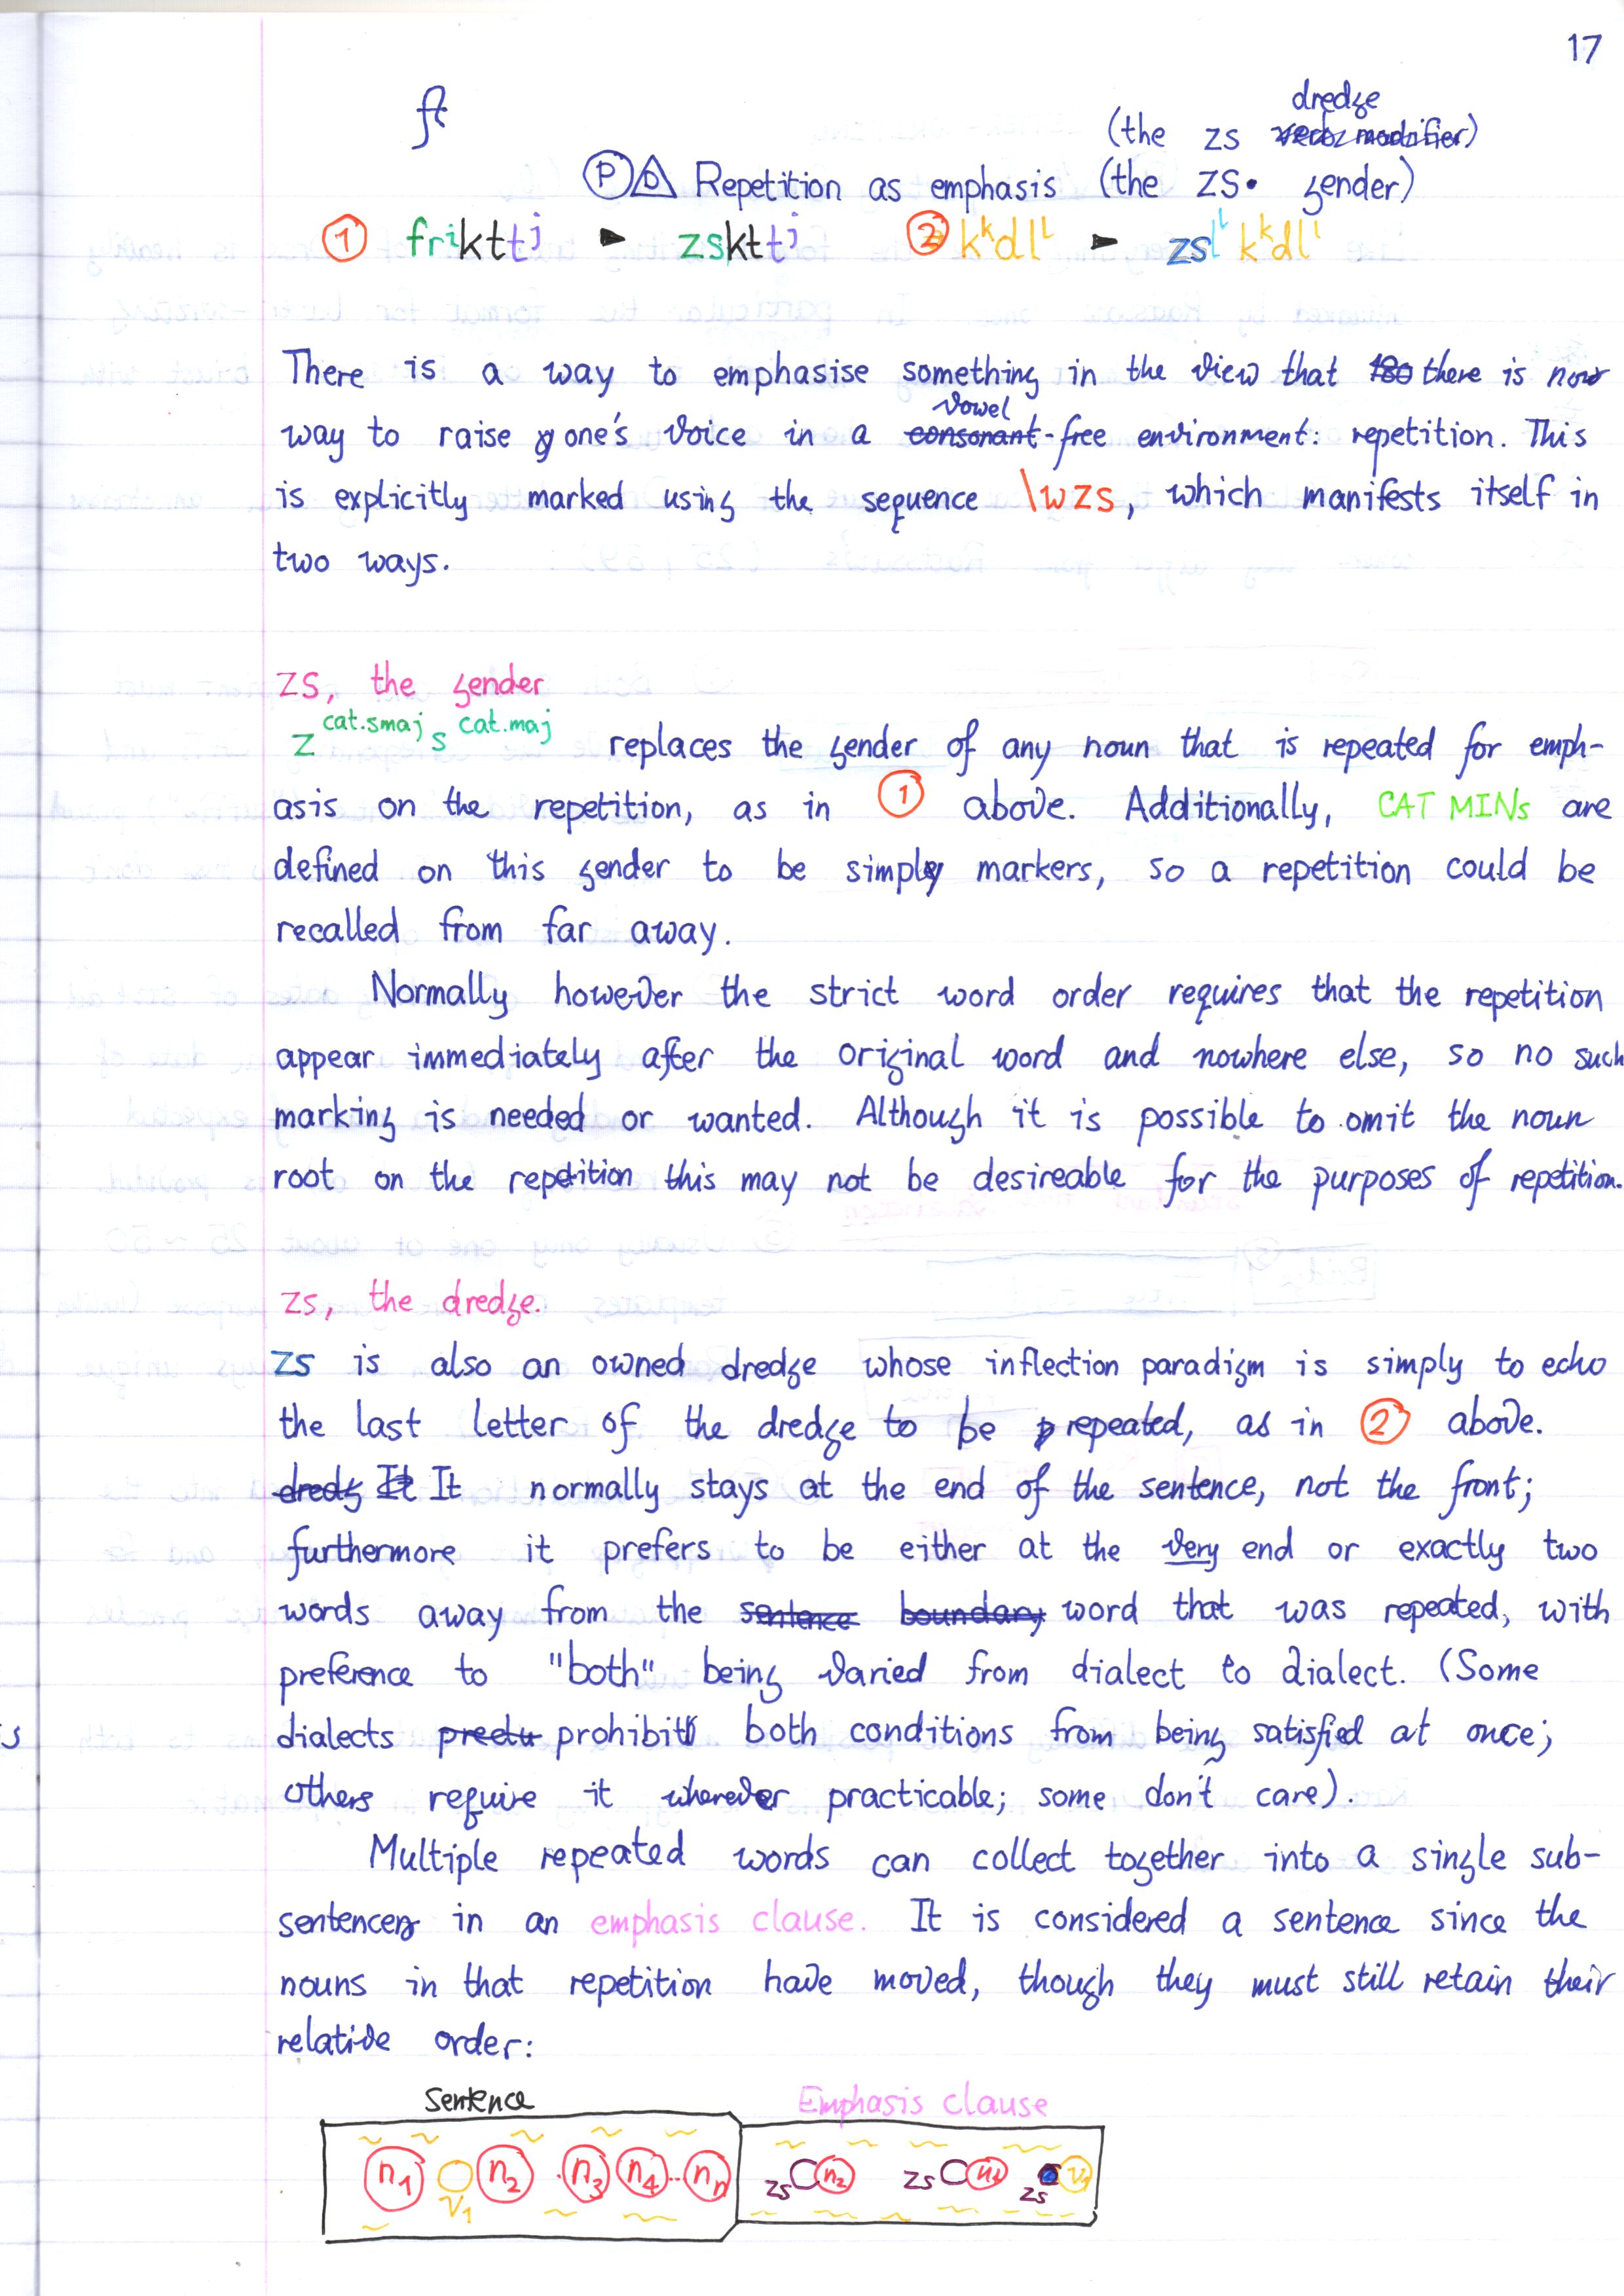 17
ft
dredge
(the zs verb modifier)
P D Repetition as emphasis (the zs. gender)
1 friktttj ► zskttj 2 kkdll ► zsl kkdll
There is a way to emphasise something in the view that there is now
vowel
way to raise one's voice in a consonant-free environment: repetition. This
is explicitly marked using the sequence \wzs, which manifests itself in
two ways.
zs, the gender
z cat.smaj s cat.maj replaces the gender of any noun that is repeated for emph-
asis on the repetition, as in 1 above. Additionally, CAT MINs are
defined on this gender to be simply markers, so a repetition could be
recalled from far away.
Normally however the strict word order requires that the repetition
appear immediately after the original word and nowhere else, so no such
marking is needed or wanted. Although it is possible to omit the noun
root on the repetition this may not be desireable for the purposes of repetition.
zs, the dredge.
zs is also an owned dredge whose inflection paradigm is simply to echo
the last letter of the dredge to be repeated, as in 2 above.
dredg It It normally stays at the end of the sentence, not the front;
furthermore it prefers to be either at the very end or exactly two
words away from the sentence boundary word that was repeated, with
preference to "both" being varied from dialect to dialect. (Some
dialects prohibit both conditions from being satisfied at once;
others require it wherever practicable; some don't care).
Multiple repeated words can collect together into a single sub-
sentence in an emphasis clause. It is considered a sentence since the
nouns in that repetition have moved, though they must still retain their
relative order:
Sentence Emphasis clause
n1 v1 n2 n3 n4 .. nn zs n2 zs n4 zs v1